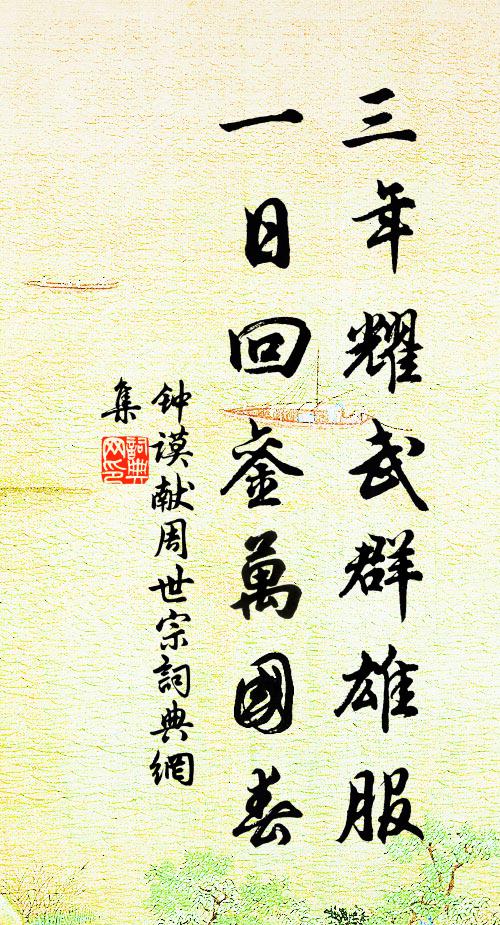 三年耀武群雄服
一日回銮萬國春
钟谟献周世宗詞典網
集
詞典网印